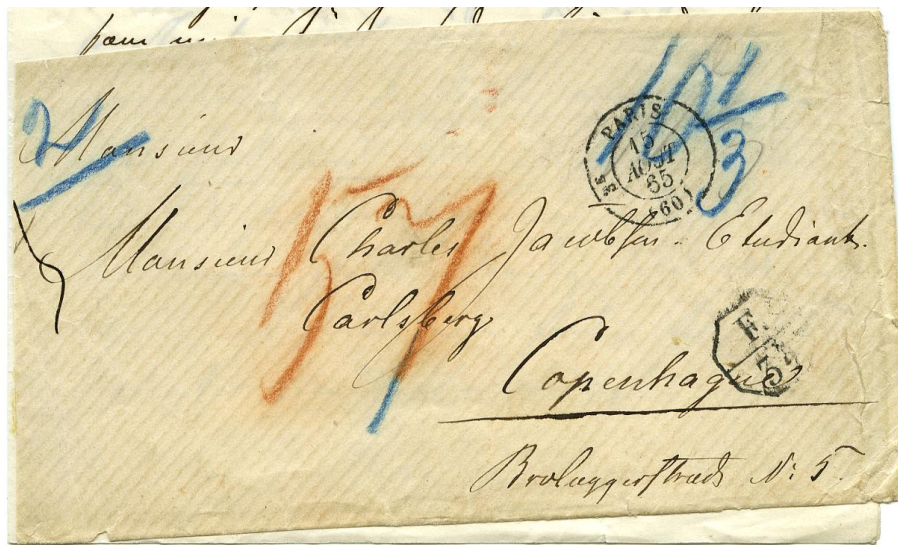 pour
2
10 1/3
Monsieur
3E PARIS (60)
15
AOUT
65
Monsieur Charles Jacobsen. Etudiant.
Carlsberg
17
F.
Copenhague
Brolæggerstræde No: 5.